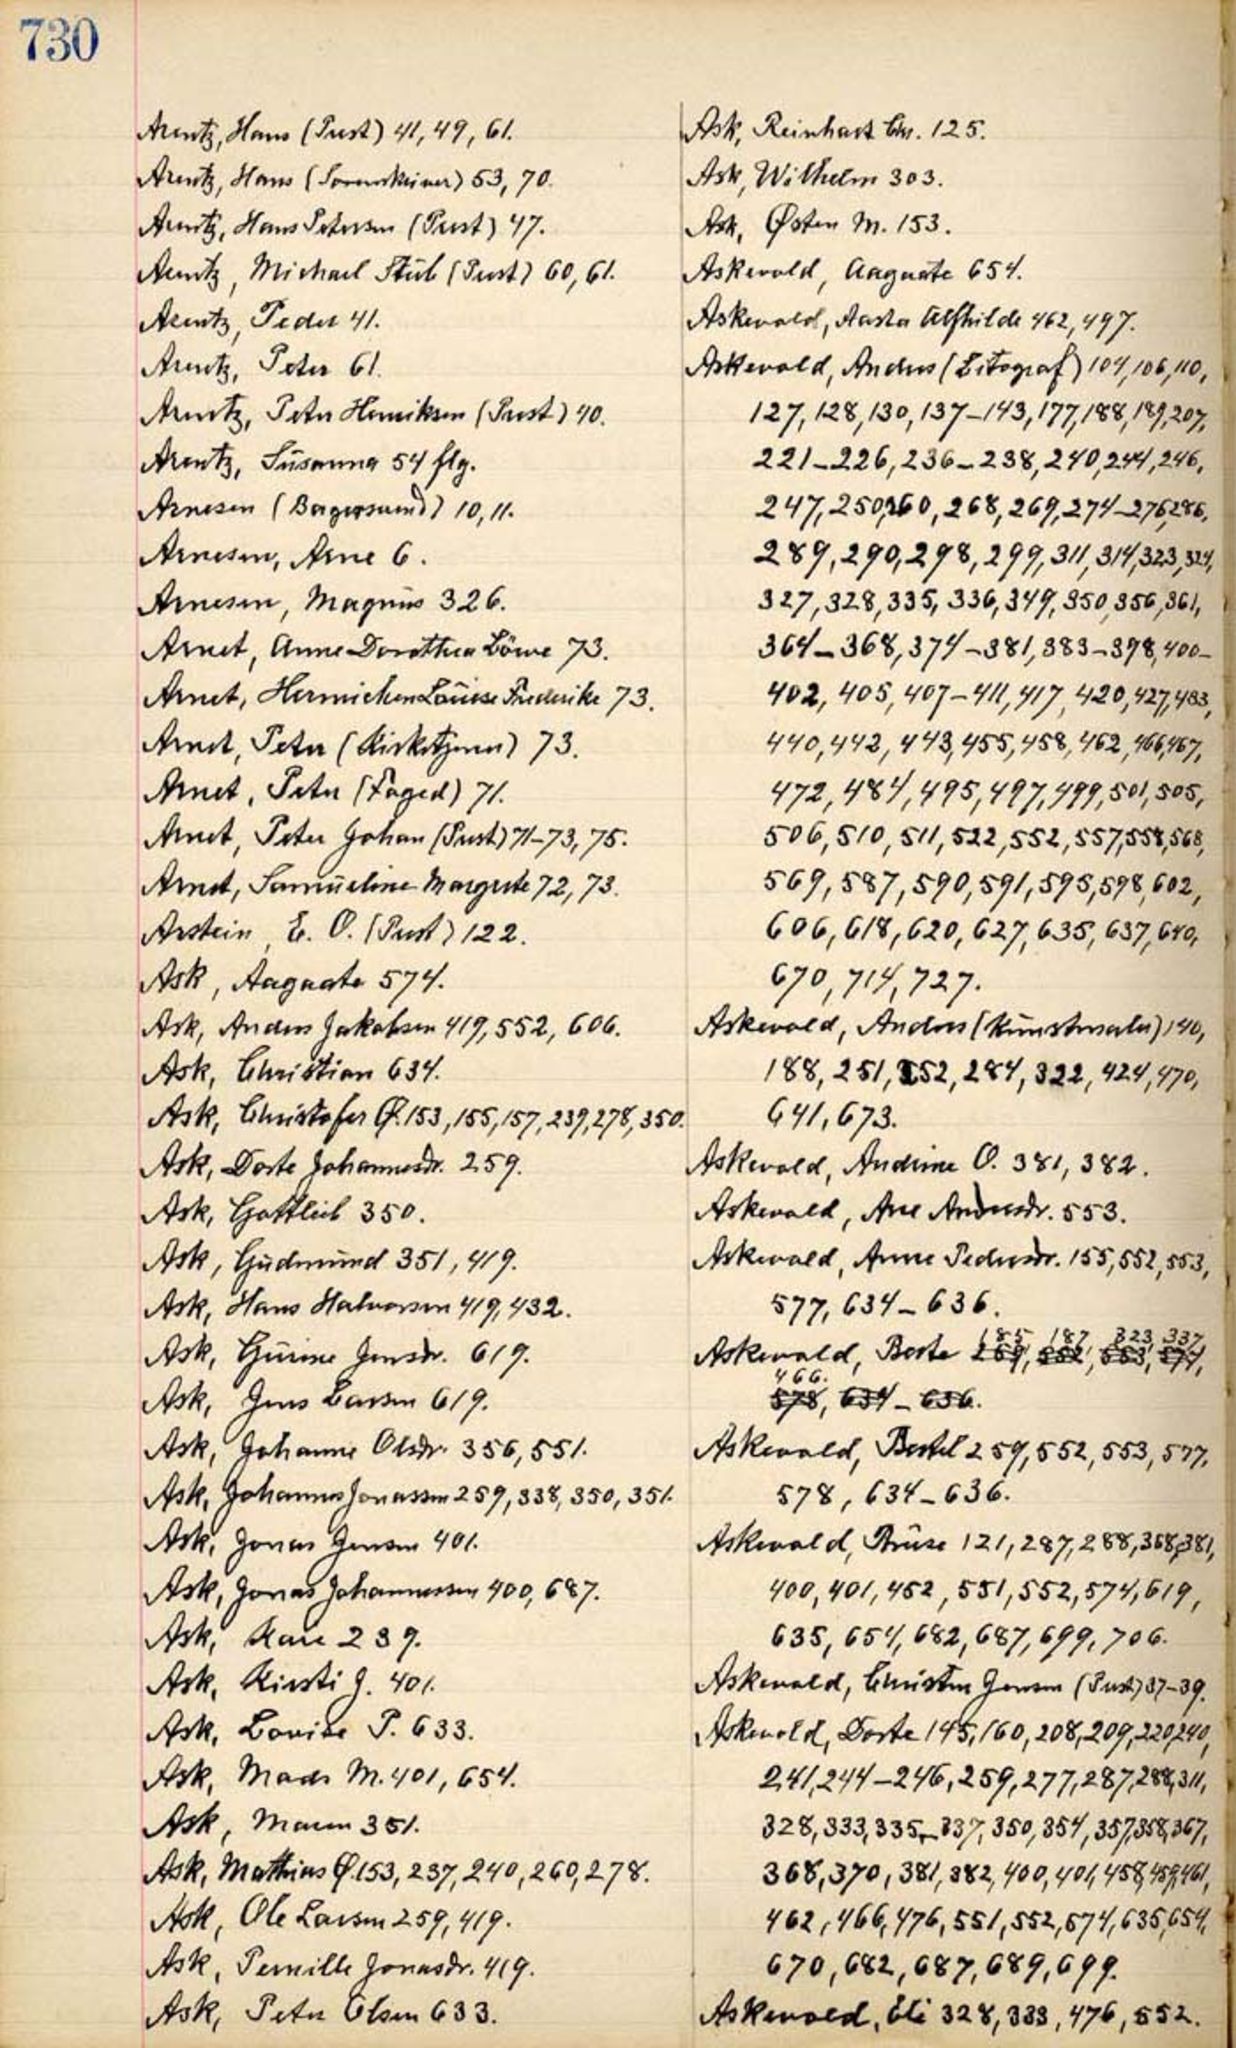 730
Arentz, Hans (Prest) 41, 49, 61.
Arentz, Hans (Sorenskriver) 53, 70.
Arentz, Hans Petersen (Prest) 47.
Arentz, Michael Stub (Prest) 60, 61.
Arentz, Peder 41.
Arentz, Peter 61.
Arentz, Peter Henriksen (Prest) 40.
Arentz, Susanna 54 flg.
Arnesen 10, 11.
Arnesen, Arne 6.
Arnesen, Magnus 326.
Arnet, Anne Dorothea Löwe 73.
Arnet, Hermichen Louise Frederike 73.
Arnet, Peter 73.
Arnet, Peter (Foged) 71.
Arnet, Peter Johan (Prest) 71-73, 75.
Arnet, Samueline Margrete 72, 73.
Arstein, E. O. (Prest) 122.
Ask, Aagaate 574.
Ask, Anders Jakobsen 419, 552, 606.
Ask, Christian 634.
Ask, Christofer Ø. 153, 155, 157, 239, 278, 350.
Ask, Dorte Johannesdr. 259.
Ask, Gottlieb 350.
Ask, Gudmund 351, 419.
Ask, Hans Halvorsen 419, 432.
Ask, Gurine Jensdr. 619.
Ask, Jens Larsen 619.
Ask, Johanne Olsdr. 356, 551.
Ask, Johannes Jonassen 259, 338, 350, 351.
Ask, Jonas Jensen 401.
Ask, Jonas Johannessen 400, 687.
Ask, Kari 239.
Ask, Kirsti J. 401.
Ask, Lovise P. 633.
Ask, Mads M. 401, 654.
Ask, Maren 351.
Ask, Mathias Ø. 153, 237, 240, 260, 278.
Ask, Ole Larsen 259, 419.
Ask, Pernille Jonasdr. 419.
Ask, Peter Olsen 633.
Ask, Reinhart Chr. 125.
Ask, Wilhelm 303.
Ask, Østen M. 153.
Askevold, Aagaate 654.
Askevold, Aasta Alfhilde 462, 497.
Askevold, Anders (Litograf) 104, 106, 110,
127, 128, 130, 137-143, 177, 188, 189, 207,
221-226, 236-238, 240, 244, 246,
247, 250, 260, 268, 269, 274-276, 286,
289, 290, 298, 299, 311, 314, 323, 324,
327, 328, 335, 336, 349, 350, 356, 361,
364-368, 374-381, 383-398, 400-
402, 405, 407-411, 417, 420, 427, 433,
440, 442, 443, 455, 458, 462, 466, 467,
472, 484, 495, 497, 499, 501, 505,
506, 510, 511, 522, 552, 557, 558, 568,
569, 587, 590, 591, 595, 598, 602,
606, 618, 620, 627, 635, 637, 640,
670, 714, 727.
Askevold, Anders (Kunstmaler) 140,
188, 251, 252, 284, 322, 424, 470,
641, 673.
Askevold, Andrine O. 381, 382.
Askevold, Ane Andersdr. 553.
Askevold, Anne Pedersdr. 155, 552, 553,
577, 634-636.
185, 187, 323, 337,
Askevold, Berte 259, 552, 553, 577,
466.
578, 634-636.
Askevold, Bertel 259, 552, 553, 577,
578, 634-636.
Askevold, Bruse 121, 287, 288, 368, 381,
400, 401, 452, 551, 552, 574, 619,
635, 654, 682, 687, 699, 706.
Askevold, Christen Jensen (Prest) 37-39.
Askevold, Dorte 145, 160, 208, 209, 220, 240,
241, 244-246, 259, 277, 287, 288, 311,
328, 333, 335-337, 350, 354, 357, 358, 367,
368, 370, 381, 382, 400, 401, 458, 459, 461,
462, 466, 476, 551, 552, 574, 635, 654,
670, 682, 687, 689, 699.
Askevold, Eli 328, 333, 476, 552.